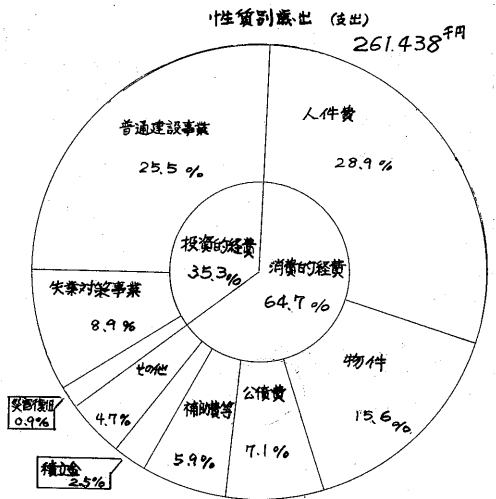 性質別歳出 (支出)
261.438千円
人件費
28.9%
普通建設事業
25.5%
投資的経費
35.3%
消費的経費
64.7%
失業対策事業
8.9%
物件
15.6%
その他
4.7%
補助費等
5.9%
公債費
7.1%
災害復旧
0.9%
積立金
2.5%